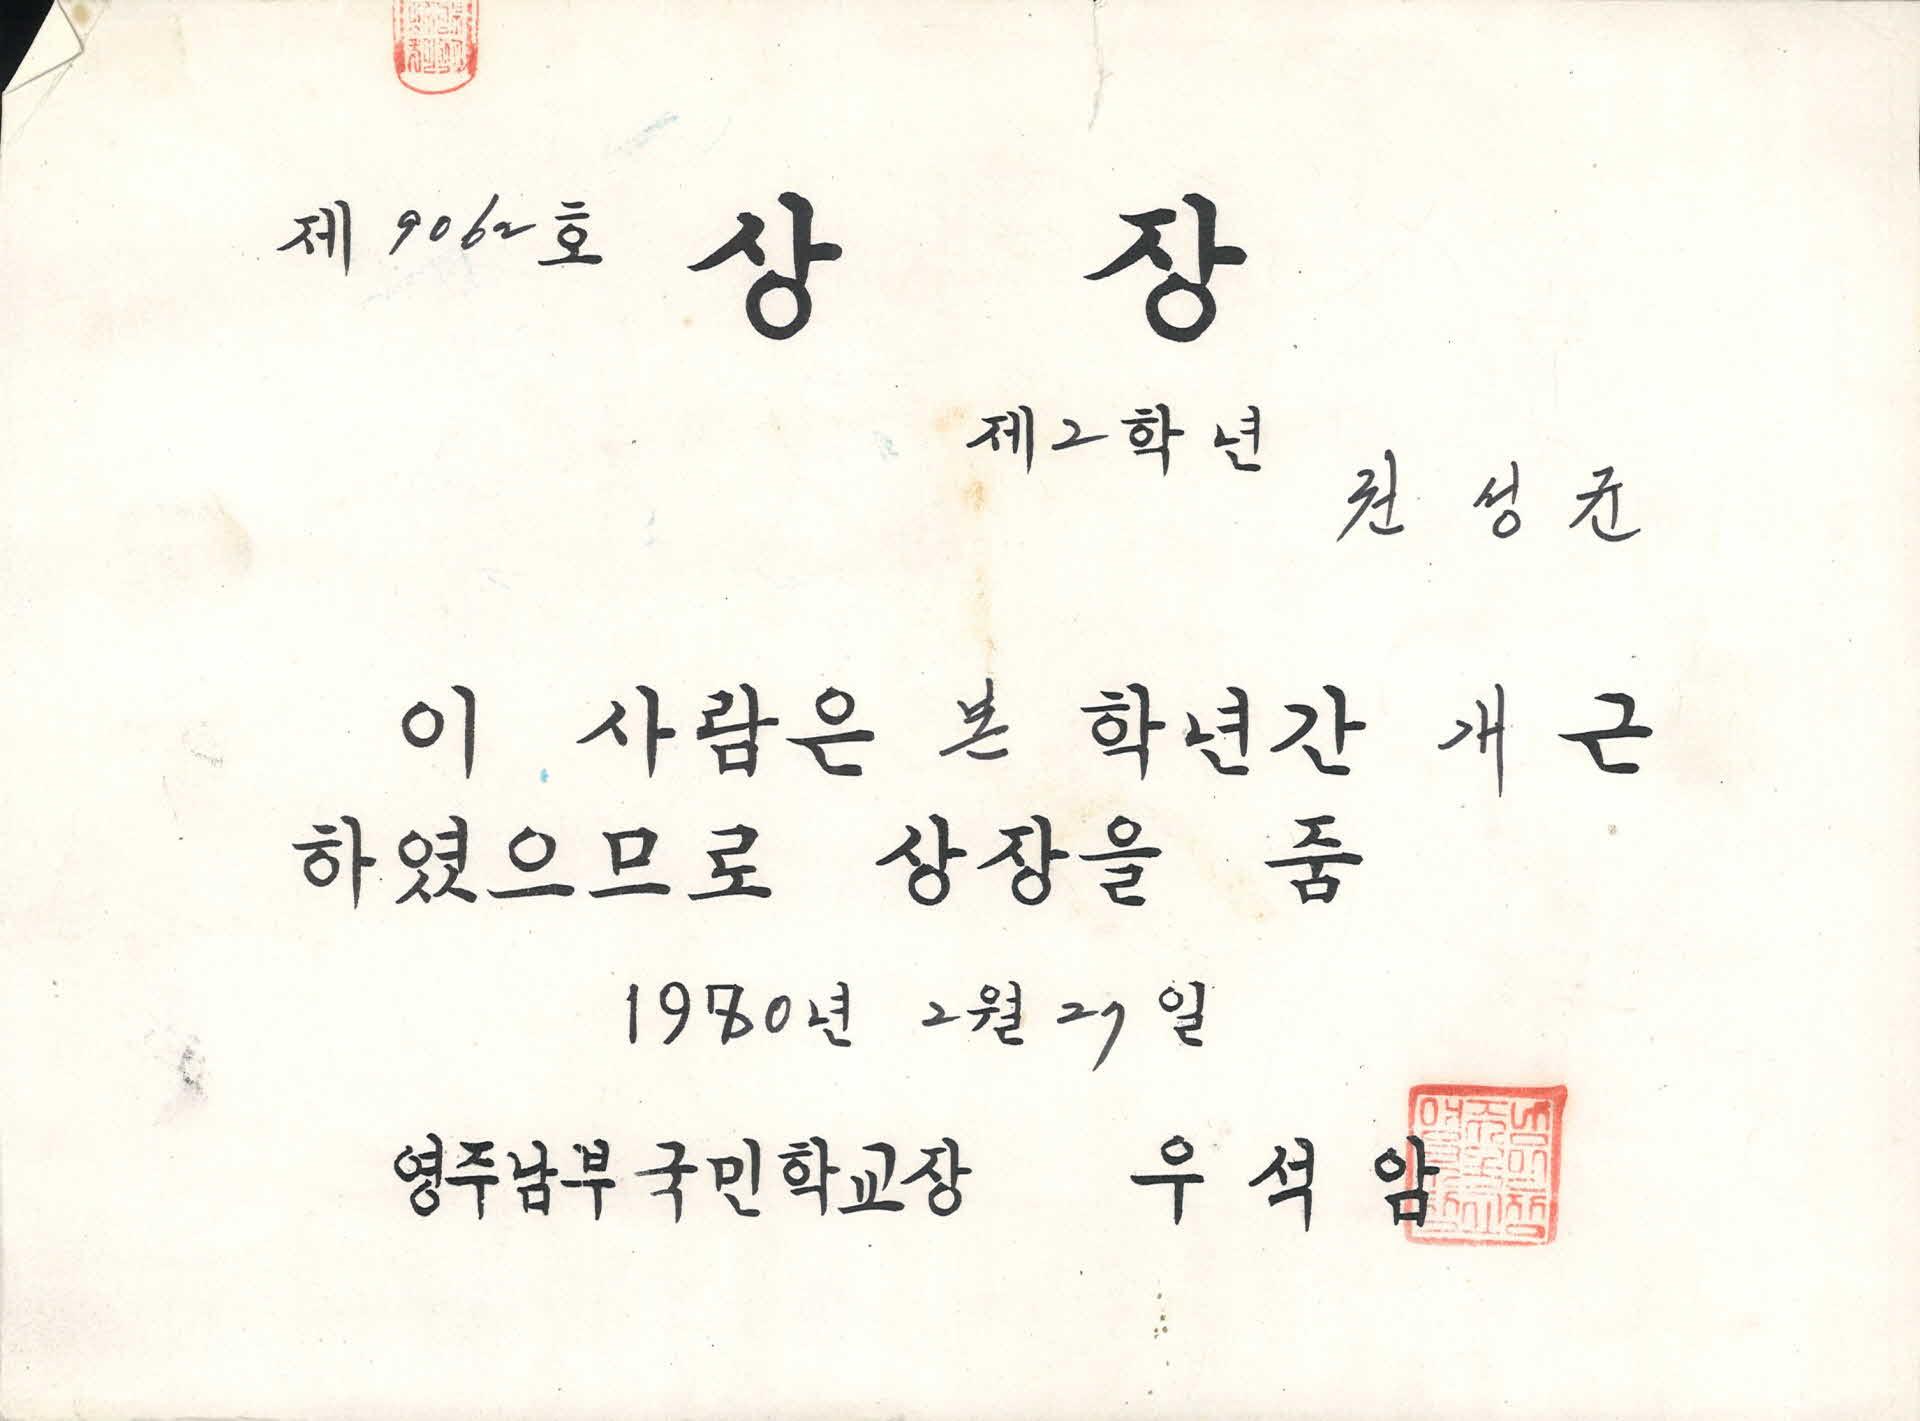 제 9062 호 상 장
제 2 학 년
권 성 균
이 사람은 본 학년간 개 근
하였으므로 상장을 줌
1980년 2월 27일
영주남부국민학교장 우 석 암